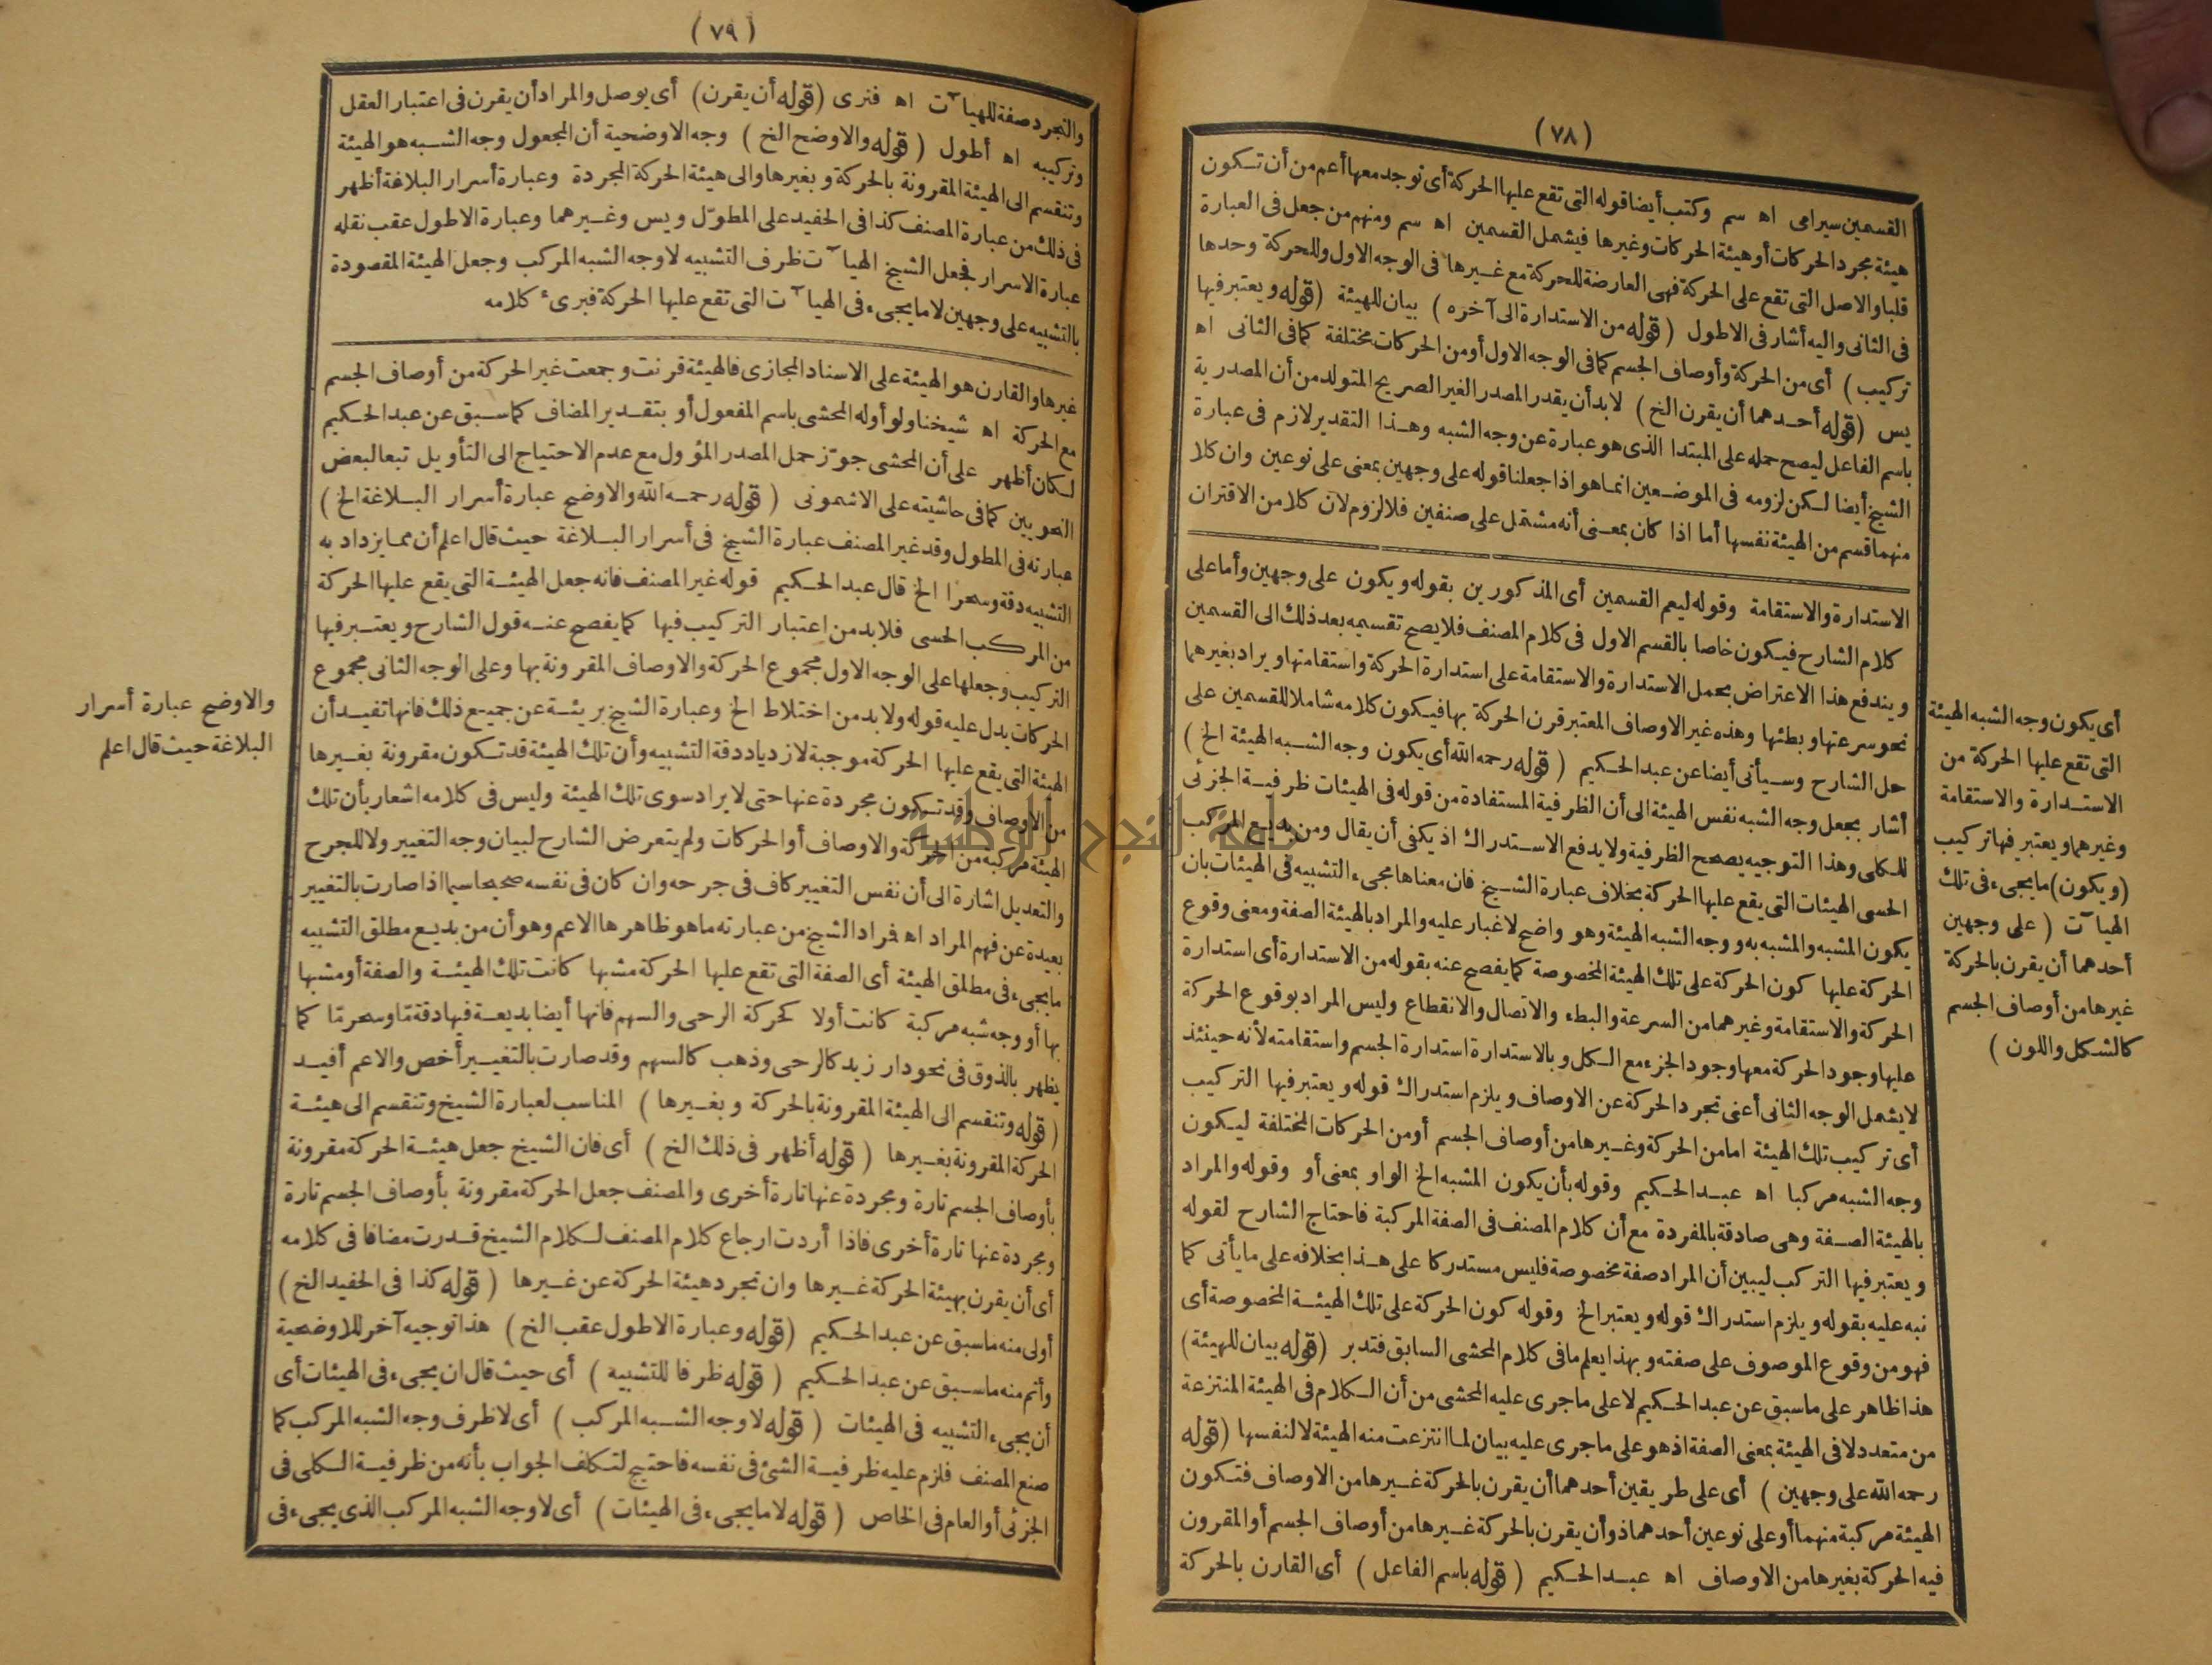 (٧٨)
القسمين سيرامى اه سم وكتب أيضا قوله التى تقع عليها الحركة أى توجد معها أعم من أن تكون
هيئة مجرد الحركات أو هيئة الحركات وغيرها فيشمل القسمين اه سم ومنهم من جعل فى العبارة
قلبا والاصل التى تقع على الحركة فهى العارضة للحركة مع غيرها فى الوجه الاول وللحركة وحدها
فى الثانى واليه أشار فى الاطول (قوله من الاستدارة الى آخره) بيان للهيئة (قوله ويعتبر فيها
تركيب) أى من الحركة وأوصاف الجسم كما فى الوجه الاول أو من الحركات مختلفة كما فى الثانى اه
يس (قوله أحدهما أن يقرن الخ) لابد أن يقدر المصدر الغير الصريح المتولد من أن المصدرية
باسم الفاعل ليصح حمله على المبتدا الذى هو عبارة عن وجه الشبه وهذا التقدير لازم فى عبارة
الشيخ أيضا لكن لزومه فى الموضعين انما هو اذا جعلنا قوله على وجهين بمعنى على نوعين وان كلا
منهما قسم من الهيئة نفسها أما اذا كان بمعنى أنه مشتمل على صنفين فلا لزوم لان كلا من الاقتران
الاستدارة والاستقامة وقوله ليعم القسمين أى المذكورين بقوله ويكون على وجهين وأما على
كلام الشارح فيكون خاصا بالقسم الاول فى كلام المصنف فلا يصح تقسيمه بعد ذلك الى القسمين
ويندفع هذا الاعتراض بحمل الاستدارة والاستقامة على استدارة الحركة واستقامتها ويراد بغيرهما
نحو سرعتها وبطئها وهذه غير الاوصاف المعتبر قرن الحركة بها فيكون كلامه شاملا للقسمين على
حل الشارح وسيأتى أيضا عن عبد الحكيم (قوله رحمه الله أى يكون وجه الشبه الهيئة الخ)
أشار بجعل وجه الشبه نفس الهيئة الى أن الظرفية المستفادة من قوله فى الهيئات ظرفية الجزئى
للكلى وهذا التوجيه يصحح الظرفية ولا يدفع الاستدراك اذ يكفى أن يقال ومن بديع المركب
الحسى الهيئات التى يقع عليها الحركة بخلاف عبارة الشيخ فان معناها مجىء التشبيه فى الهيئات بان
يكون المشبه والمشبه به ووجه الشبه الهيئة وهو واضح لا غبار عليه والمراد بالهيئة الصفة ومعنى وقوع
الحركة عليها كون الحركة على تلك الهيئة المخصوصة كما يفصح عنه بقوله من الاستدارة أى استدارة
الحركة والاستقامة وغيرهما من السرعة والبطء والاتصال والانقطاع وليس المراد بوقوع الحركة
عليها وجود الحركة معها وجود الجزء مع الكل وبالاستدارة استدارة الجسم واستقامته لأنه حينئذ
لا يشمل الوجه الثانى أعنى تجرد الحركة عن الاوصاف ويلزم استدراك قوله ويعتبر فيها التركيب
أى تركيب تلك الهيئة اما من الحركة وغيرها من أوصاف الجسم أو من الحركات المختلفة ليكون
وجه الشبه مركبا اه عبد الحكيم وقوله بأن يكون المشبه الخ الواو بمعنى أو وقوله والمراد
بالهيئة الصفة وهى صادقة بالمفردة مع أن كلام المصنف فى الصفة المركبة فاحتاج الشارح لقوله
ويعتبر فيها التركيب ليبين أن المراد صفة مخصوصة فليس مستدركا على هذا بخلافه على ما يأتى كما
نبه عليه بقوله ويلزم استدراك قوله ويعتبر الخ وقوله كون الحركة على تلك الهيئة المخصوصة أى
فهو من وقوع الموصوف على صفته وبهذا يعلم ما فى كلام المحشى السابق فتدبر (قوله بيان للهيئة)
هذا ظاهر على ما سبق عن عبد الحكيم لا على ما جرى عليه المحشى من أن الكلام فى الهيئة المنتزعة
من متعدد لا فى الهيئة بمعنى الصفة اذ هو على ما جرى عليه بيان لما انتزعت منه الهيئة لا لنفسها (قوله
رحمه الله على وجهين) أى على طريقين أحدهما أن يقرن بالحركة غيرها من الاوصاف فتكون
الهيئة مركبة منهما أو على نوعين أحدهما ذو أن يقرن بالحركة غيرها من أوصاف الجسم أو المقرون
فيه الحركة بغيرها من الاوصاف اه عبد الحكيم (قوله باسم الفاعل) أى القارن بالحركة
أى يكون وجه الشبه الهيئة
التى تقع عليها الحركة من
الاستدارة والاستقامة
وغيرهما ويعتبر فيها تركيب
(ويكون) ما يجىء فى تلك
الهيآت (على وجهين
أحدهما أن يقرن بالحركة
غيرها من أوصاف الجسم
كالشكل واللون)
(٧٩)
والتجرد صفة للهيآت اه فنرى (قوله أن يقرن) أى يوصل والمراد أن يقرن فى اعتبار العقل
وتركيبه اه أطول (قوله والاوضح الخ) وجه الاوضحية أن المجعول وجه الشبه هو الهيئة
وتنقسم الى الهيئة المقرونة بالحركة وبغيرها والى هيئة الحركة المجردة وعبارة أسرار البلاغة أظهر
فى ذلك من عبارة المصنف كذا فى الحفيد على المطوّل ويس وغيرهما وعبارة الاطول عقب نقله
عبارة الاسرار فجعل الشيخ الهيآت ظرف التشبيه لا وجه الشبه المركب وجعل الهيئة المقصودة
بالتشبيه على وجهين لا ما يجىء فى الهيآت التى تقع عليها الحركة فبرىء كلامه
غيرها والقارن هو الهيئة على الاسناد المجازى فالهيئة قرنت وجمعت غير الحركة من أوصاف الجسم
مع الحركة اه شيخنا ولو أوله المحشى باسم المفعول أو بتقدير المضاف كما سبق عن عبد الحكيم
لكان أظهر على أن المحشى جوّز حمل المصدر المؤول مع عدم الاحتياج الى التأويل تبعا لبعض
النحويين كما فى حاشيته على الاشمونى (قوله رحمه الله والاوضح عبارة أسرار البلاغة الخ)
عبارته فى المطول وقد غير المصنف عبارة الشيخ فى أسرار البلاغة حيث قال اعلم أن مما يزداد به
التشبيه دقة وسحرا الخ قال عبد الحكيم قوله غير المصنف فانه جعل الهيئة التى يقع عليها الحركة
من المركب الحسى فلا بد من اعتبار التركيب فيها كما يفصح عنه قول الشارح ويعتبر فيها
التركيب وجعلها على الوجه الاول مجموع الحركة والاوصاف المقرونة بها وعلى الوجه الثانى مجموع
الحركات يدل عليه قوله ولا بد من اختلاط الخ وعبارة الشيخ بريئة عن جميع ذلك فانها تفيد أن
الهيئة التى يقع عليها الحركة موجبة لازدياد دقة التشبيه وأن تلك الهيئة قد تكون مقرونة بغيرها
من الاوصاف وقد تكون مجردة عنها حتى لا يراد سوى تلك الهيئة وليس فى كلامه اشعار بأن تلك
الهيئة مركبة من الحركة والاوصاف أو الحركات ولم يتعرض الشارح لبيان وجه التغيير ولا للمجرح
والتعديل اشارة الى أن نفس التغيير كاف فى جرحه وان كان فى نفسه صحيحا سيما اذا صارت بالتغيير
بعيدة عن فهم المراد اه فراد الشيخ من عبارته ما هو ظاهرها الاعم وهو أن من بديع مطلق التشبيه
ما يجىء فى مطلق الهيئة أى الصفة التى تقع عليها الحركة مشبها كانت تلك الهيئة والصفة أو مشبها
بها أو وجه شبه مركبة كانت أولا كحركة الرحى والسهم فانها أيضا بديعة فيها دقة مّا وسحر مّا كما
يظهر بالذوق فى نحو دار زيد كالرحى وذهب كالسهم وقد صارت بالتغيير أخص والاعم أفيد
(قوله وتنقسم الى الهيئة المقرونة بالحركة وبغيرها) المناسب لعبارة الشيخ وتنقسم الى هيئة
الحركة المقرونة بغيرها (قوله أظهر فى ذلك الخ) أى فان الشيخ جعل هيئة الحركة مقرونة
بأوصاف الجسم تارة ومجردة عنها تارة أخرى والمصنف جعل الحركة مقرونة بأوصاف الجسم تارة
ومجردة عنها تارة أخرى فاذا أردت ارجاع كلام المصنف لكلام الشيخ قدرت مضافا فى كلامه
أى أن يقرن بهيئة الحركة غيرها وان تجرد هيئة الحركة عن غيرها (قوله كذا فى الحفيد الخ)
أولى منه ما سبق عن عبد الحكيم (قوله وعبارة الاطول عقب الخ) هذا توجيه آخر للاوضحية
وأتم منه ما سبق عن عبد الحكيم (قوله ظرفا للتشبيه) أى حيث قال ان يجىء فى الهيئات أى
أن يجىء التشبيه فى الهيئات (قوله لا وجه الشبه المركب) أى لا ظرف وجه الشبه المركب كما
صنع المصنف فلزم عليه ظرفية الشئ فى نفسه فاحتيج لتكلف الجواب بأنه من ظرفية الكلى فى
الجزئى أو العام فى الخاص (قوله لا ما يجىء فى الهيئات) أى لا وجه الشبه المركب الذى يجىء فى
والاوضح عبارة أسرار
البلاغة حيث قال اعلم
جامعة النجاح الوطنية